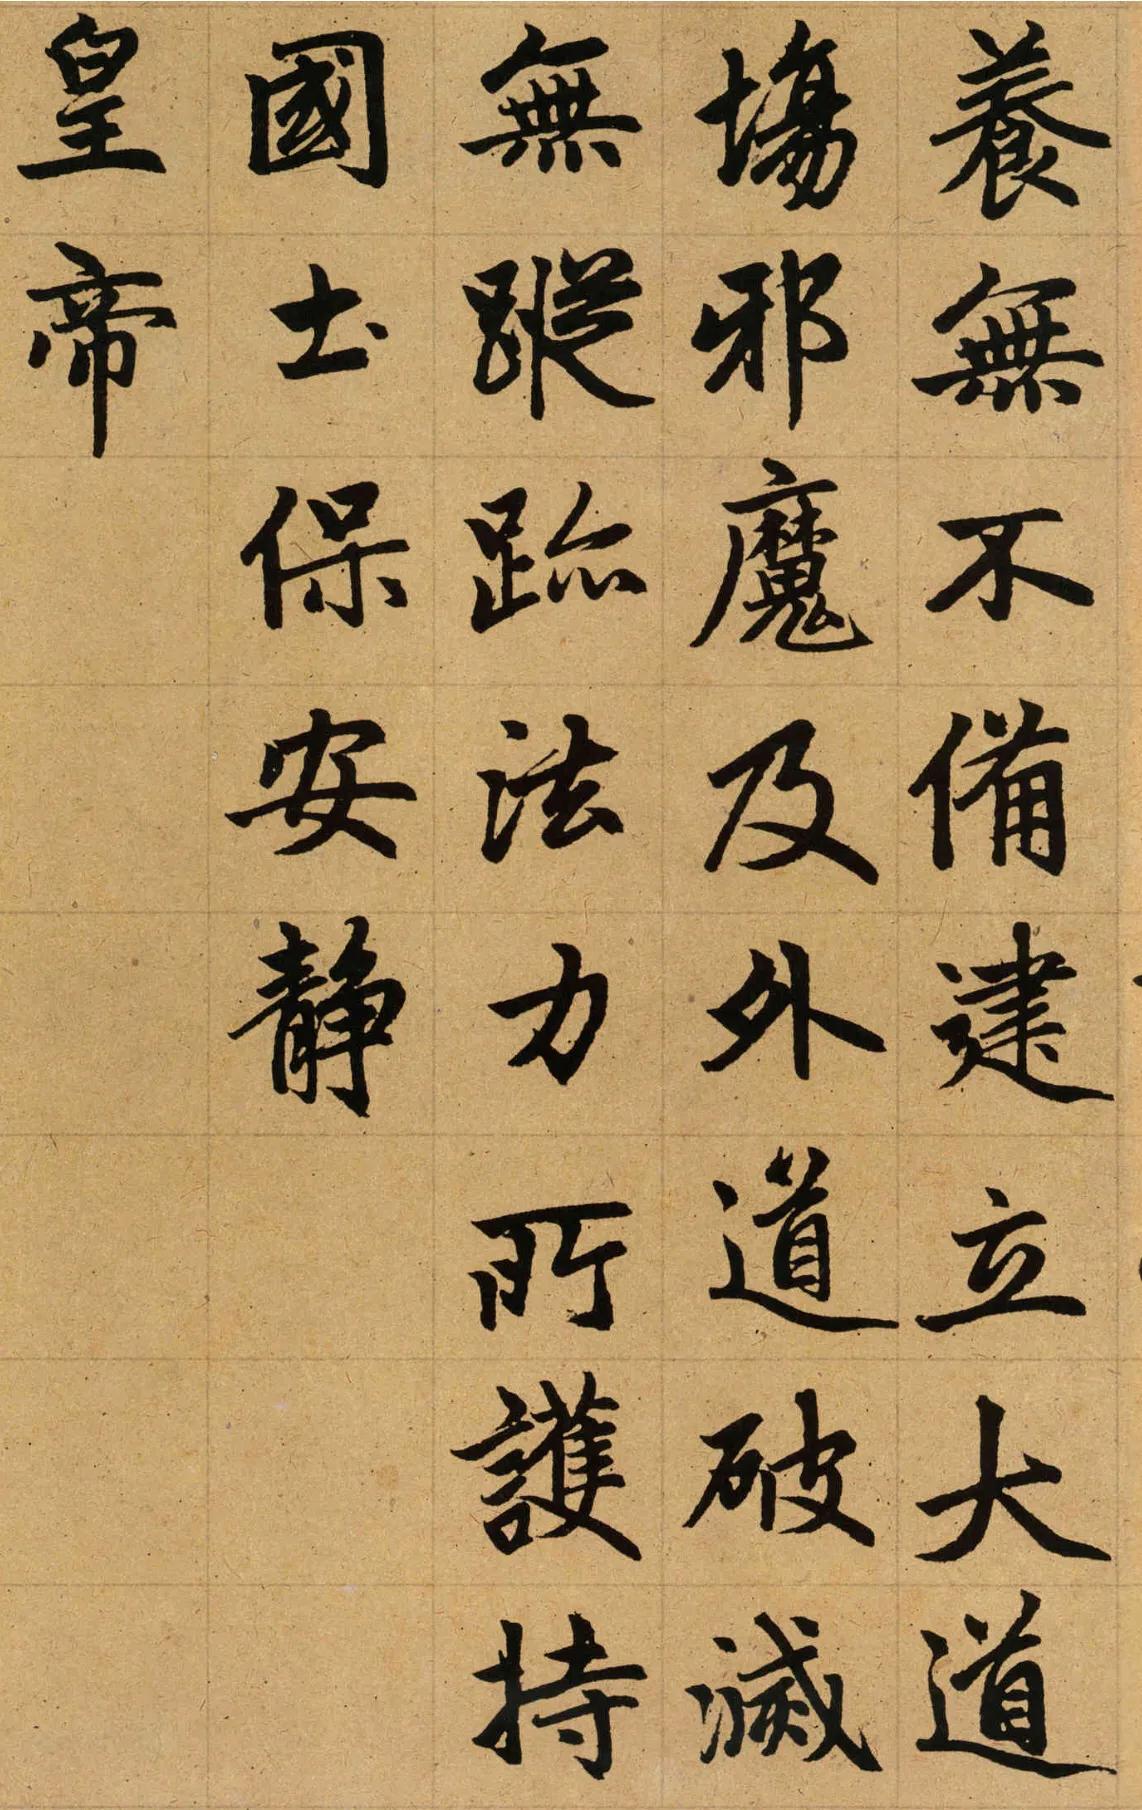 養無不備建立大道
場邪魔及外道破滅
無蹤跡法力所護持
國土保安靜
皇帝